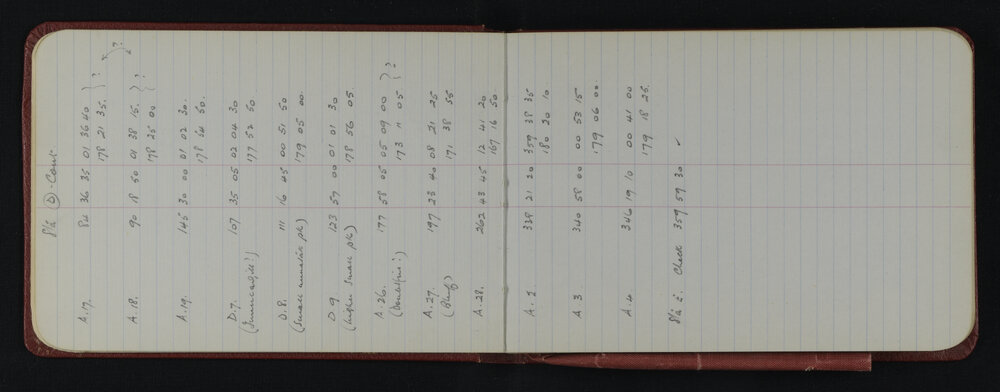 Stn (D). Cont.
A.17. 84 36 35 01 36 40 } ?
178 21 35. } ?
A.18. 90 18 50 01 38 15. } ?
178 25 00
A.19. 145 30 00 01 02 30.
178 54 50.
D.7. 107 35 05 02 04 30
177 52 50
D.8. 111 16 45 00 51 50
(Small nunatak pk) 179 05 00.
D 9. 123 57 00 01 01 30
(higher Small pk) 178 56 05
A.26. 177 58 05 05 09 00 } ?
(Doubtful?) 173 11 05
A.27. 197 23 40 08 21 25
(Bluff) 171 38 55
A.28. 262 43 45 12 41 20
167 16 50
A. 2. 338 21 20 359 38 35
180 20 10.
A 3. 340 58 00 00 53 15
179 06 00.
A.4 346 19 10 00 41 00
179 18 25.
Stn E. Check 359 59 30 ✓